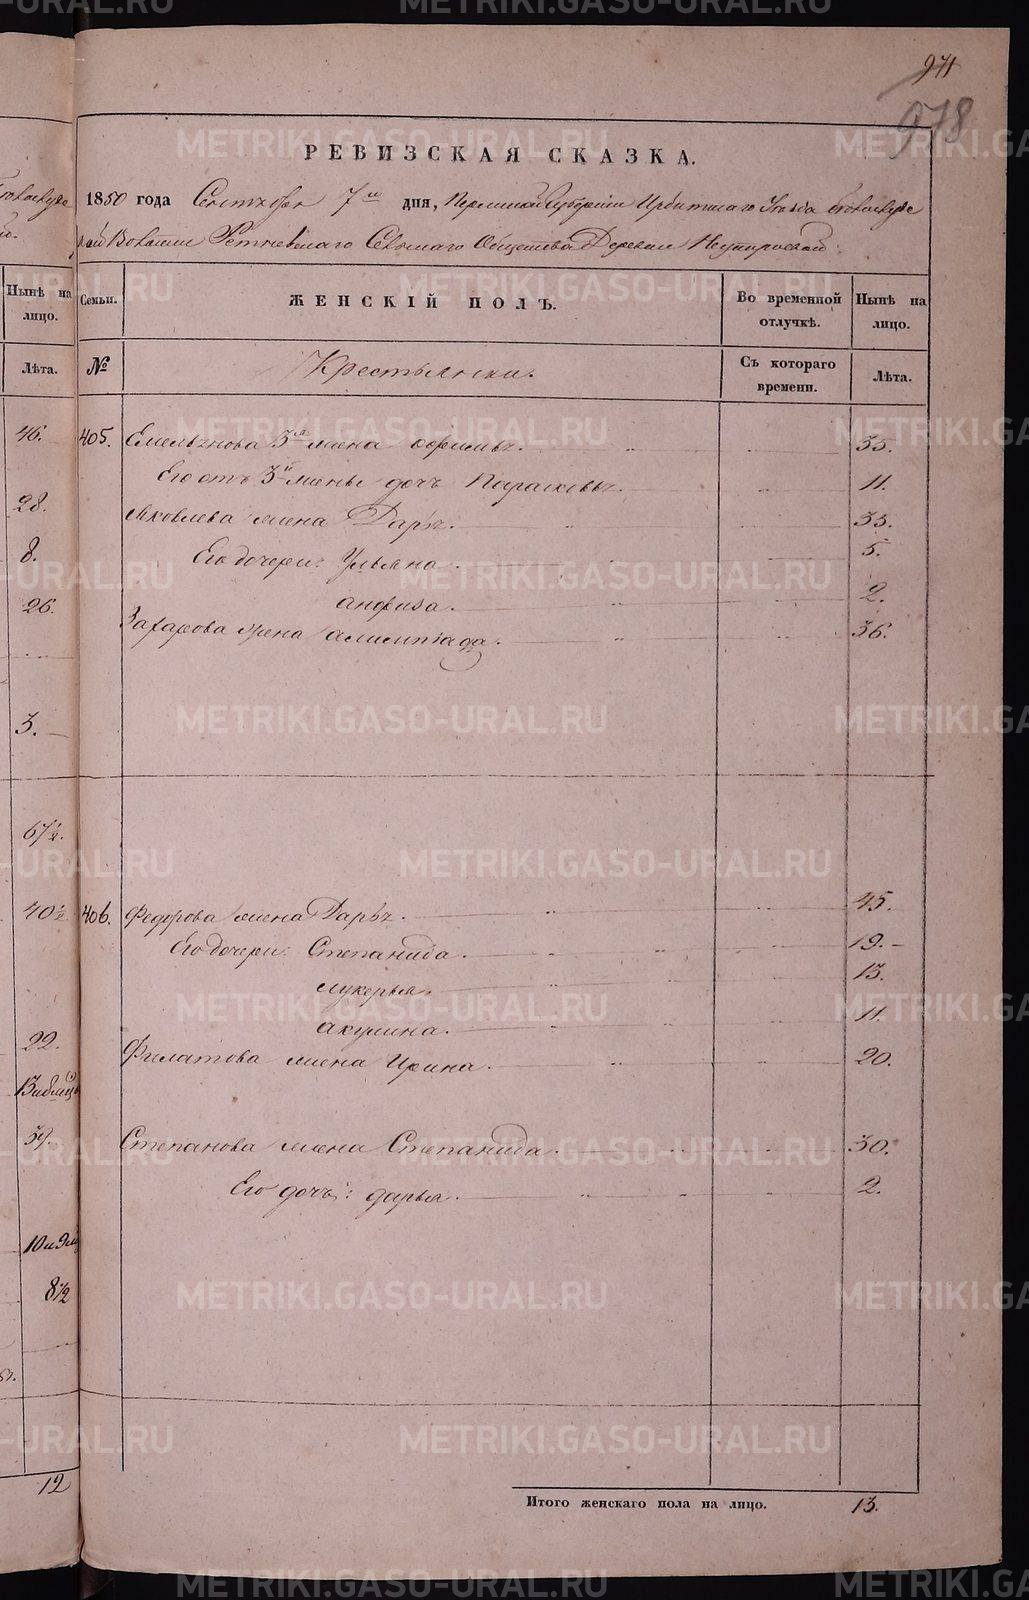 971
978
РЕВИЗСКАЯ СКАЗКА.
1850 года Сентября 7го дня, Пермской Губернии Ирбитскаго Уезда
Волости Ретневскаго Селькаго Общества Деревни
Семьи.
ЖЕНСКІЙ ПОЛЪ.
Во временной отлучкѣ.
Нынѣ на лицо.
№
Крестьянски.
Съ котораго времени.
Лѣта.
405. Емельянова 3я жена Офимья. 35.
Его отъ 3й жены дочь Парасковья. 11.
Яковлева жена Дарья. 33.
Его дочери: Ульяна. 5.
Анфиза. 2.
Захарова жена Алимпіада. 36.
406. Федорова жена Дарья. 45.
Его дочери: Степанида. 19.
Лукерья. 13.
Акулина. 11.
Филатова жена Ирина. 20.
Степанова жена Степанида. 30.
Его дочь: Дарья. 2.
Итого женскаго пола на лицо. 13.
Нынѣ на лицо.
Лѣта.
46.
28.
8.
26.
3.
67½.
40½
22.
39.
8½
12
METRIKI.GASO-URAL.RU